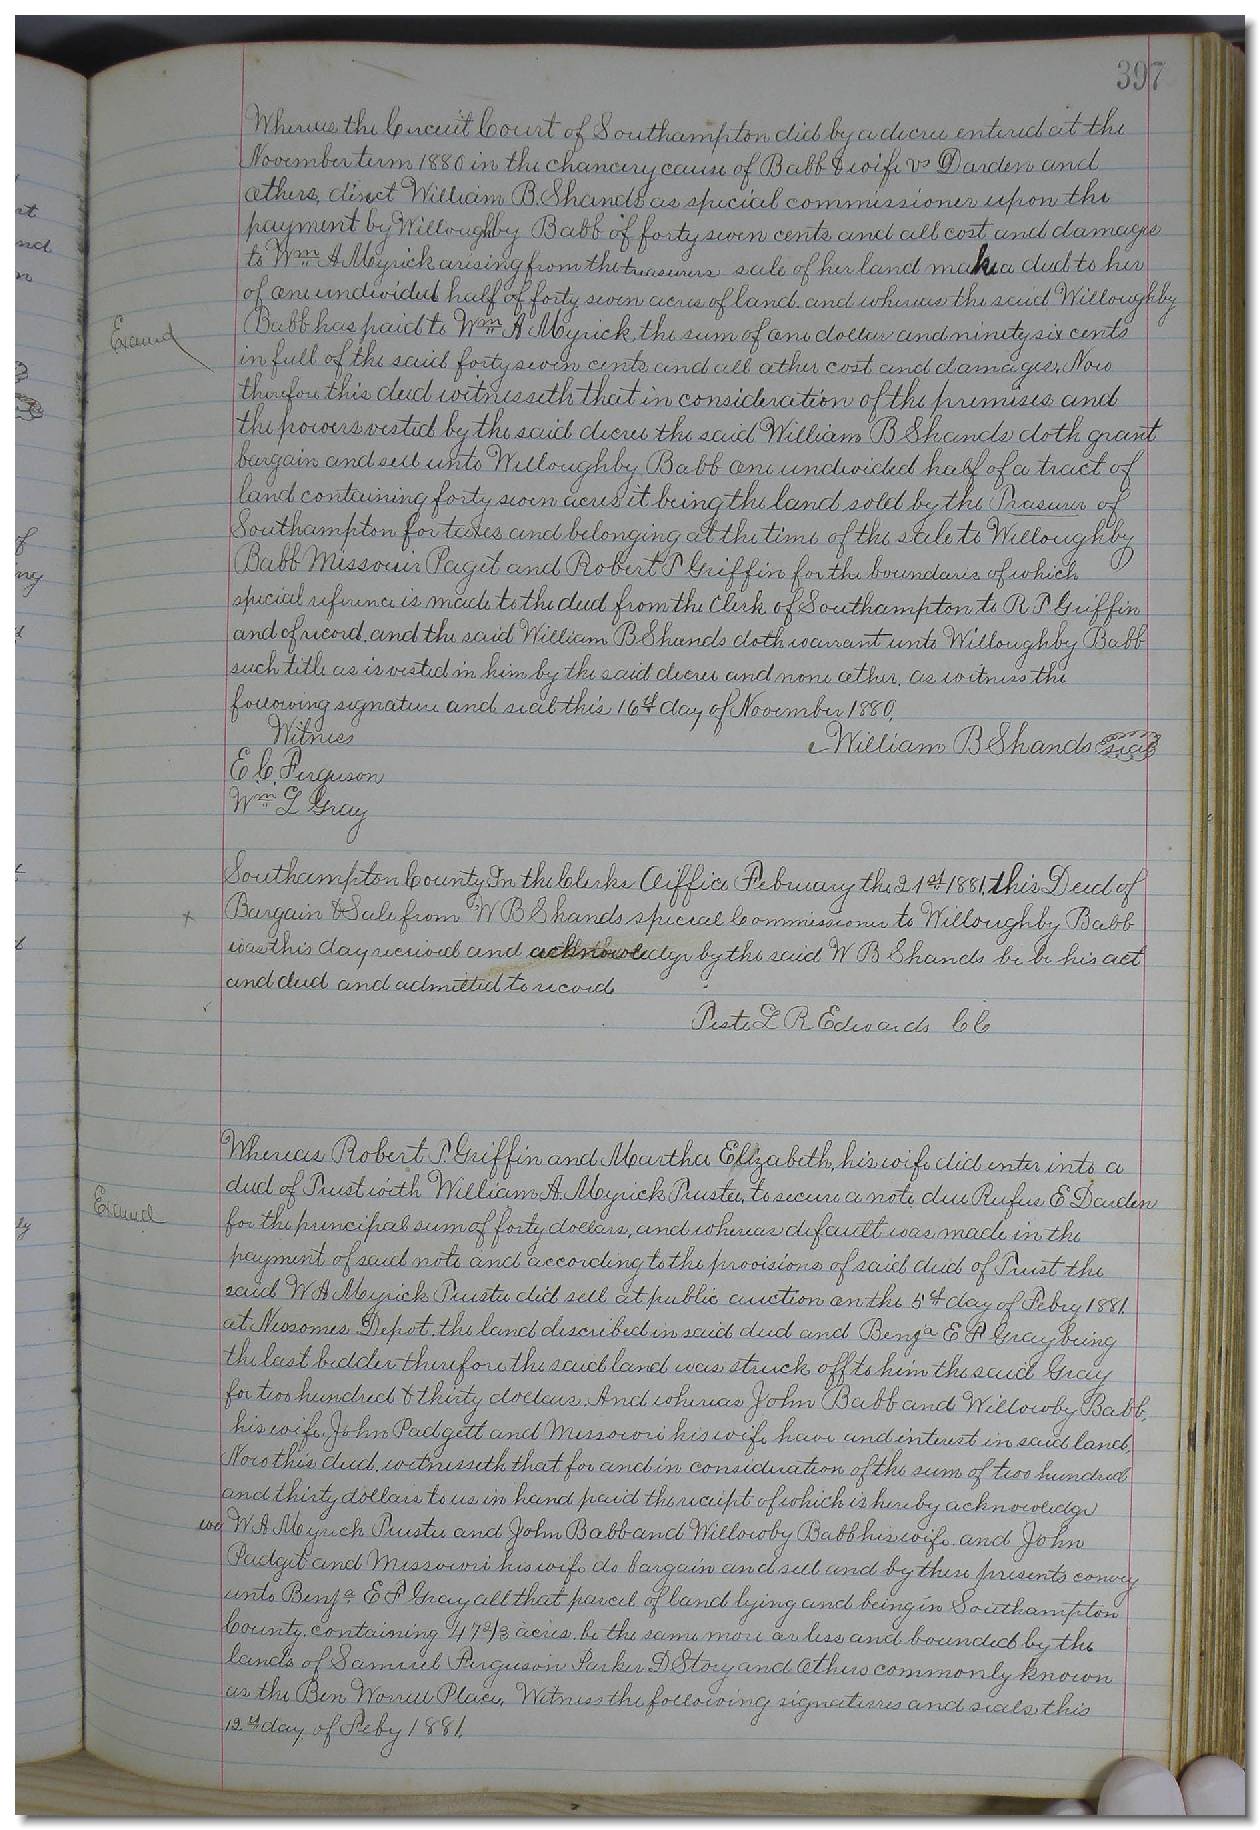 397
Whereas the Circuit Court of Southampton did by a decree entered at the
November term 1880 in the chancery cause of Babb & wife vs Darden and
others, direct William B. Shands as special commissioner upon the
payment by Willoughby Babb of forty seven cents and all cost and damage
to Wm A Myrick arising from the treasurers sale of her land make a deed to her
of one undivided half of forty seven acres of land. and whereas the said Willoughby
Babb has paid to Wm A Myrick, the sum of one dollar and ninety six cents
Examd
in full of the said forty seven cents and all other cost and damages, Now
therefore this deed witnesseth that in consideration of the premises and
the powers vested by the said decree the said William B Shands doth grant
bargain and sell unto Willoughby Babb one undivided half of a tract of
land containing forty seven acres it being the land sold by the Treasurer of
Southampton for taxes and belonging at the time of the sale to Willoughby
Babb Missouri Paget and Robert P Griffin for the boundaris of which
special reference is made to the deed from the Clerk of Southampton to R P Griffin
and of record. and the said William B Shands doth warrant unto Willoughby Babb
such title as is vested in him by the said decree and none other. as witness the
following signature and seal this 16th day of November 1880.
Witness William B Shands seal
E. C. Ferguson
Wm L Gray
Southampton County In the Clerks Office February the 21st 1881, this Deed of
Bargain & Sale from W B Shands special Commissioner to Willoughby Babb
was this day received and acknowledge by the said W B Shands be be his act
and deed and admitted to record
Teste L R Edwards CC
Whereas Robert P Griffin and Martha Elizabeth, his wife did enter into a
deed of Trust with William A. Myrick Trustee, to secure a note due Rufus E Darden
Examd
for the principal sum of forty dollars, and whereas default was made in the
payment of said note and according to the provisions of said deed of Trust the
said W A Myrick Trustee did sell at public auction on the 5th day of Febry 1881.
at Newsomes Depot, the land described in said deed and Benja E F Gray being
the last bedder therefore the said land was struck off to him the said Gray
for two hundred & thirty dollars. And whereas John Babb and Willowby Babb,
his wife, John Padgett and Missouri his wife have and interest in said land,
Now this deed. witnesseth that for and in consideration of the sum of two hundred
and thirty dollars to us in hand paid the receipt of which is hereby acknowledge
we, W A Myrick Trustee and John Babb and Willowby Babb his wife and John
Padgit and Missouri his wife do bargain and sell and by these presents convey
unto Benja E F Gray all that parcel of land lying and being in Southampton
County. containing 47 2/3 acres. be the same more or less and bounded by the
lands of Samuel Ferguson Parker D Story and others commonly known
as the Ben Worrell Place, Witness the following signatures and seals this
12th day of Feby 1881.